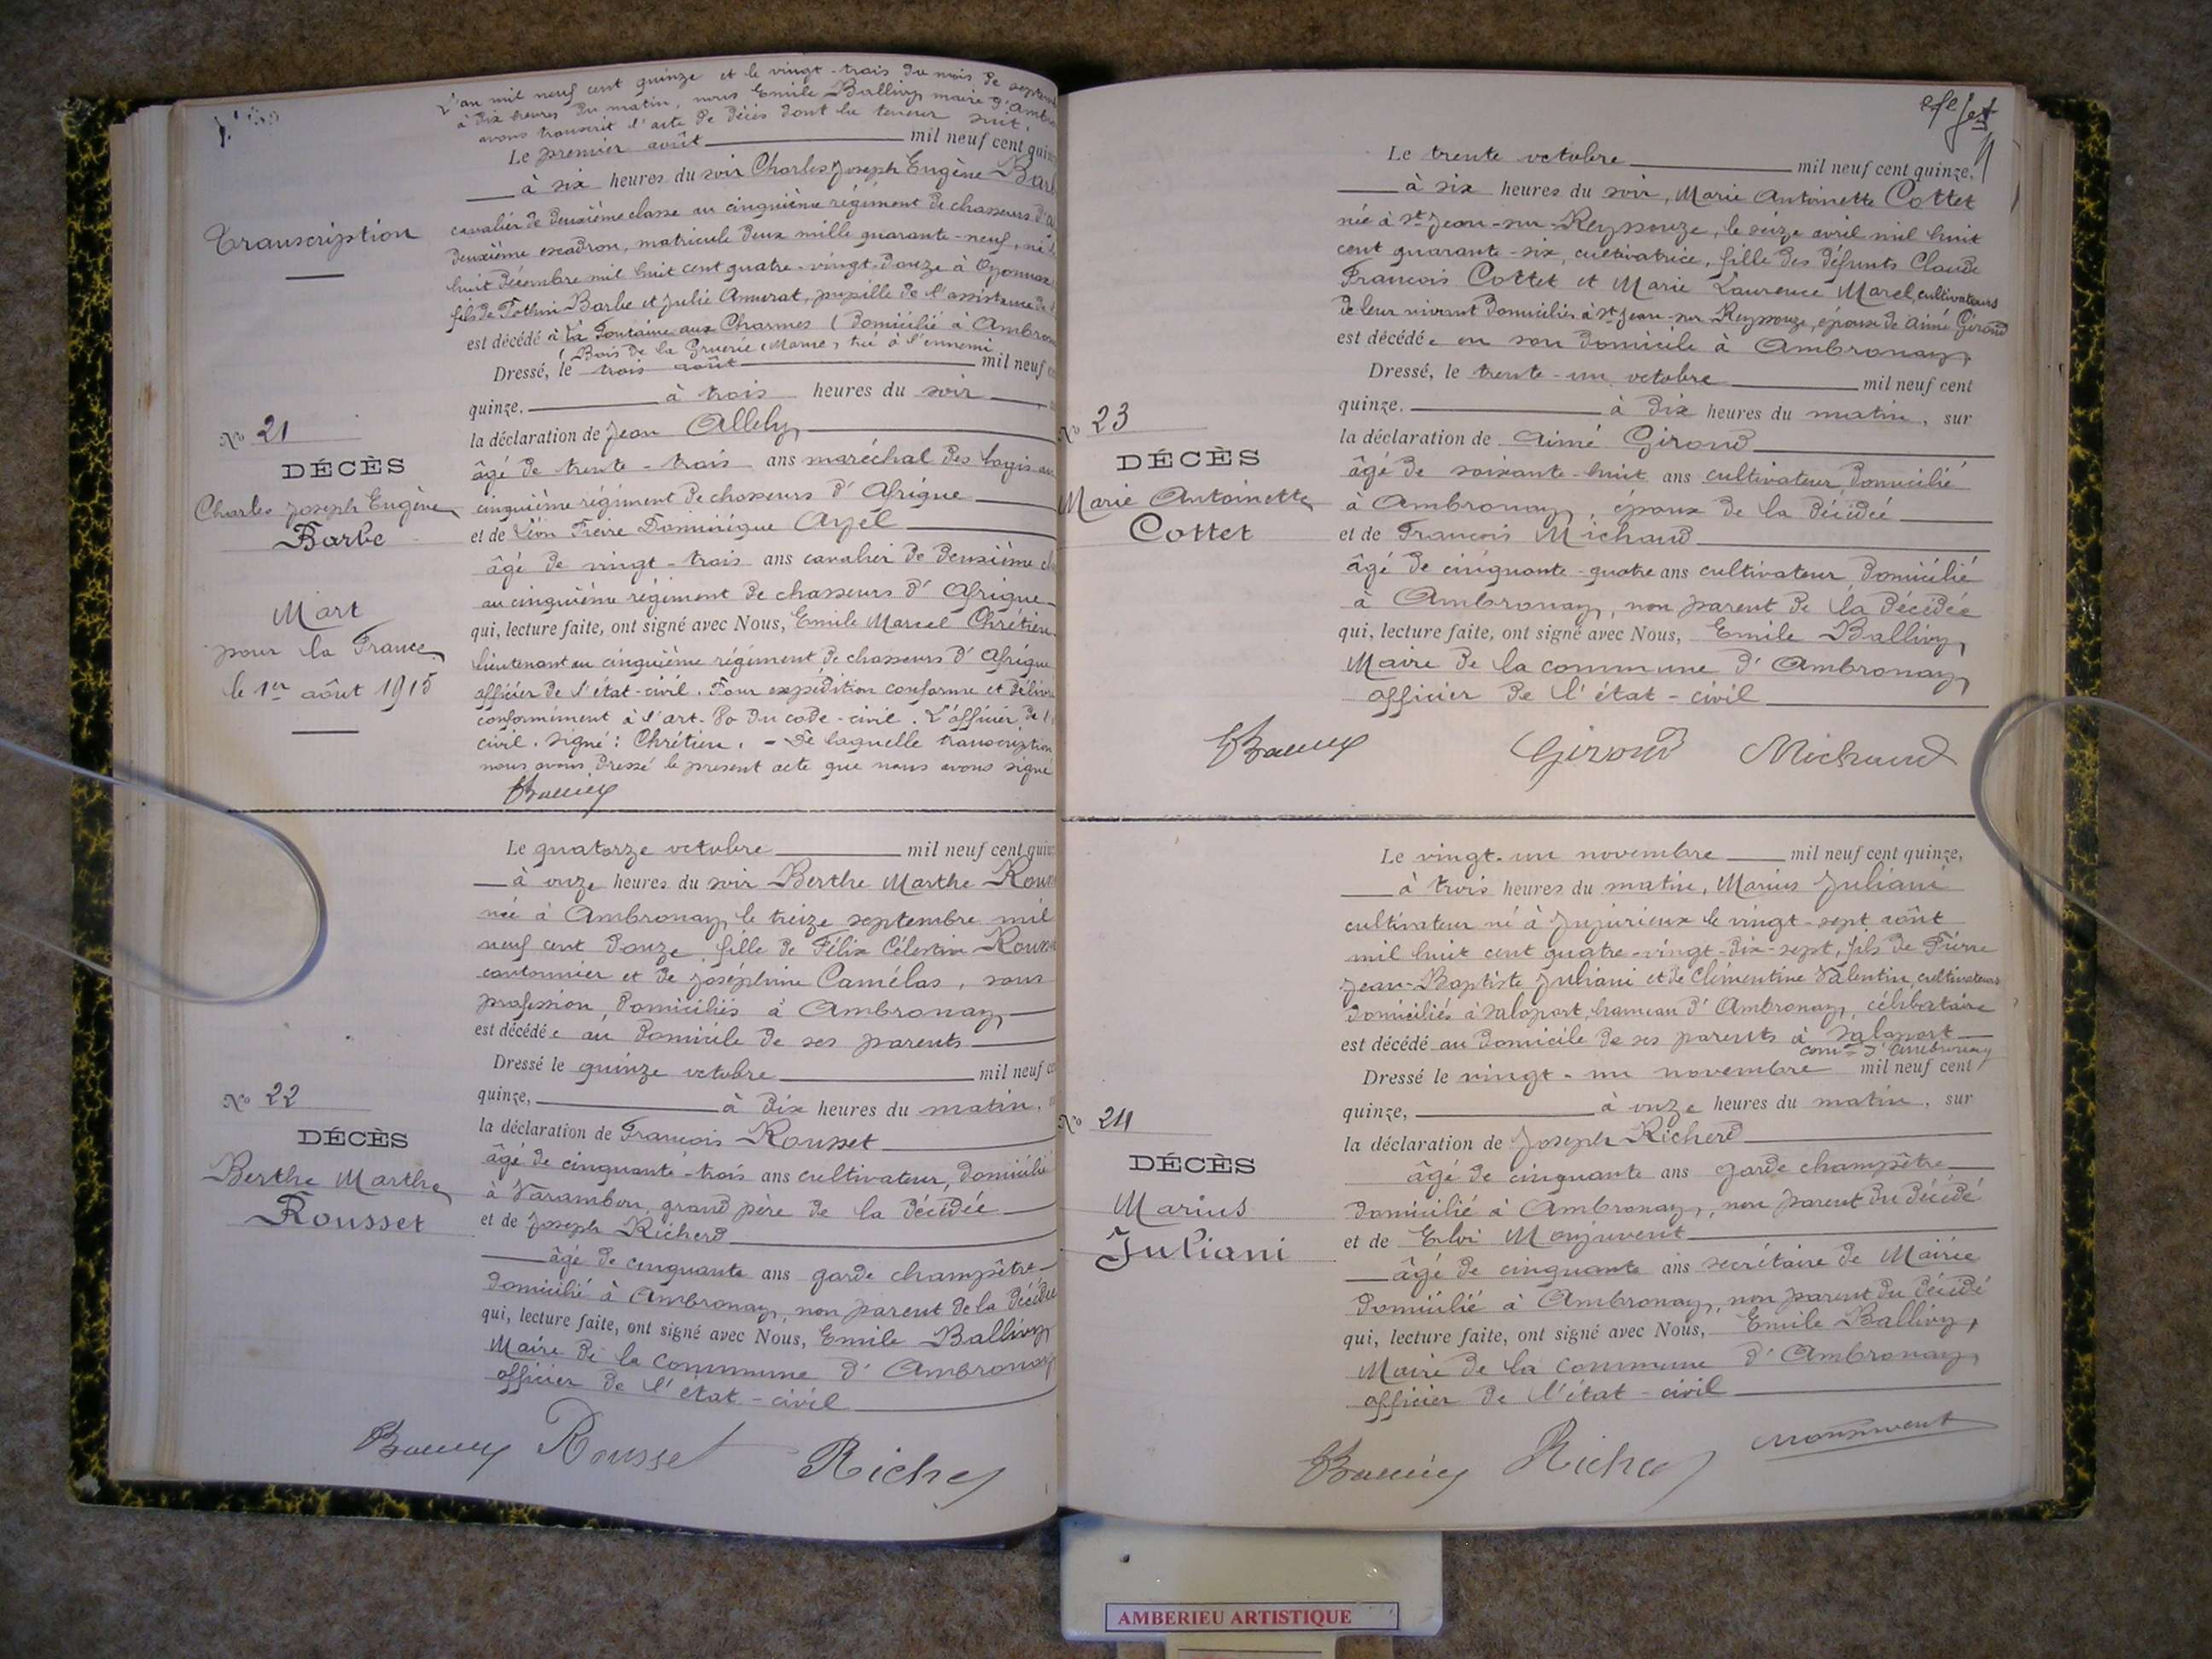 L'an mil neuf cent quinze et le vingt-trois du mois de
à dix heures du matin, nous Emile Ballivy maire
avons transcrit l'acte de décès dont la teneur suit.
Le premier août mil neuf cent
à six heures du soir Charles Joseph Eugène
Transcription
cavalier de deuxième classe au cinquième régiment de chasseurs
deuxième escadron, matricule deux mille quarante-neuf, né
huit décembre mil huit cent quatre-vingt-douze à Oyonnax
fils de Pothin Barbe et Julie Amurat, pupille de l'assistance
est décédé à La Fontaine aux Charmes (domicilié à
(Bois de la Gruerie (Marne) tué à l'ennemi
Dressé, le trois août mil neuf
quinze, à trois heures du soir
N° 21
DÉCÈS
Charles Joseph Eugène
Barbe
Mort
pour la France
le 1er août 1915
la déclaration de Jean Allely
âgé de trente-trois ans maréchal des logis au
cinquième régiment de chasseurs d'Afrique
et de Léon Freire Dominique Ayél
âgé de vingt-trois ans cavalier de deuxième
au cinquième régiment de chasseurs d'Afrique
qui, lecture faite, ont signé avec Nous, Emile Marcel Chrétien
lieutenant au cinquième régiment de chasseurs d'Afrique
officier de l'état-civil. Pour expédition conforme et
conformément à l'art. 80 du code-civil. L'officier de
civil. signé: Chrétien. - De laquelle transcription
nous avons dressé le présent acte que nous avons signé
Le quatorze octobre mil neuf cent
à onze heures du soir Berthe Marthe
née à Ambronay le treize septembre mil
neuf cent douze, fille de Félix Célestin
cantonnier et de Joséphine Camélas, sans
profession, domiciliés à Ambronay
est décédée au domicile de ses parents
Dressé le quinze octobre mil neuf
quinze, à dix heures du matin,
N° 22
DÉCÈS
Berthe Marthe
Rousset
la déclaration de François Rousset
âgé de cinquante-trois ans cultivateur, domicilié
à Varambon, grand père de la décédée
et de Joseph Richerd
âgé de cinquante ans garde champêtre
domicilié à Ambronay, non parent de la décédée
qui, lecture faite, ont signé avec Nous, Emile Ballivy
Maire de la commune d'Ambronay
officier de l'état-civil
Rousset
Le trente octobre mil neuf cent quinze,
à six heures du soir, Marie Antoinette Cottet
née à St Jean-sur-Reyssouze, le seize avril mil huit
cent quarante-six, cultivatrice, fille des défunts Claude
François Cottet et Marie Laurence Morel, cultivateurs
de leur vivant domiciliés à St Jean-sur Reyssouze, épouse de Aimé Giroud
est décédée en son domicile à Ambronay
Dressé, le trente-un octobre mil neuf cent
quinze, à dix heures du matin, sur
N° 23
DÉCÈS
Marie Antoinette
Cottet
la déclaration de Aimé Giroud
âgé de soixante-huit ans cultivateur domicilié
à Ambronay, époux de la décédée
et de François Michaud
âgé de cinquante-quatre ans cultivateur domicilié
à Ambronay, non parent de la décédée
qui, lecture faite, ont signé avec Nous, Emile Ballivy
Maire de la commune d'Ambronay
officier de l'état-civil
Giroud Michaud
Le vingt-un novembre mil neuf cent quinze,
à trois heures du matin, Marius Juliani
cultivateur né à Jujurieux le vingt-sept août
mil huit cent quatre-vingt-dix-sept, fils de Pierre
Jean-Baptiste Juliani et de Clémentine Valentin, cultivateurs
domiciliés à Salaport, hameau d'Ambronay, célibataire
est décédé au domicile de ses parents à Salaport
comne d'Ambronay
Dressé le vingt-un novembre mil neuf cent
quinze, à onze heures du matin, sur
N° 24
DÉCÈS
Marius
Juliani
la déclaration de Joseph Richerd
âgé de cinquante ans garde champêtre
domicilié à Ambronay, non parent du décédé
et de Eloi Monjuvent
âgé de cinquante ans secrétaire de Mairie
domicilié à Ambronay, non parent du décédé
qui, lecture faite, ont signé avec Nous, Emile Ballivy,
Maire de la commune d'Ambronay
officier de l'état-civil
Monjuvent
AMBERIEU ARTISTIQUE